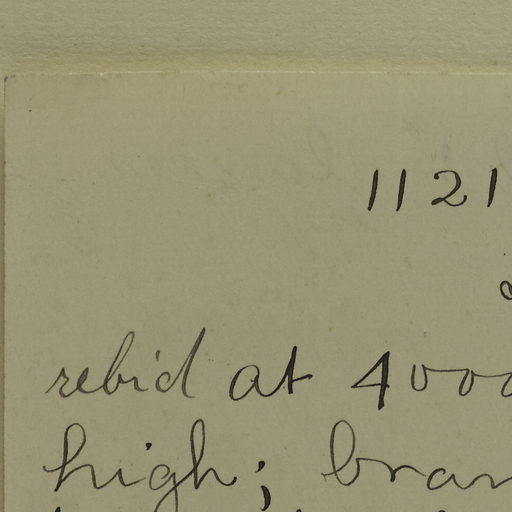 1121
rec'd at 4000
high; bran